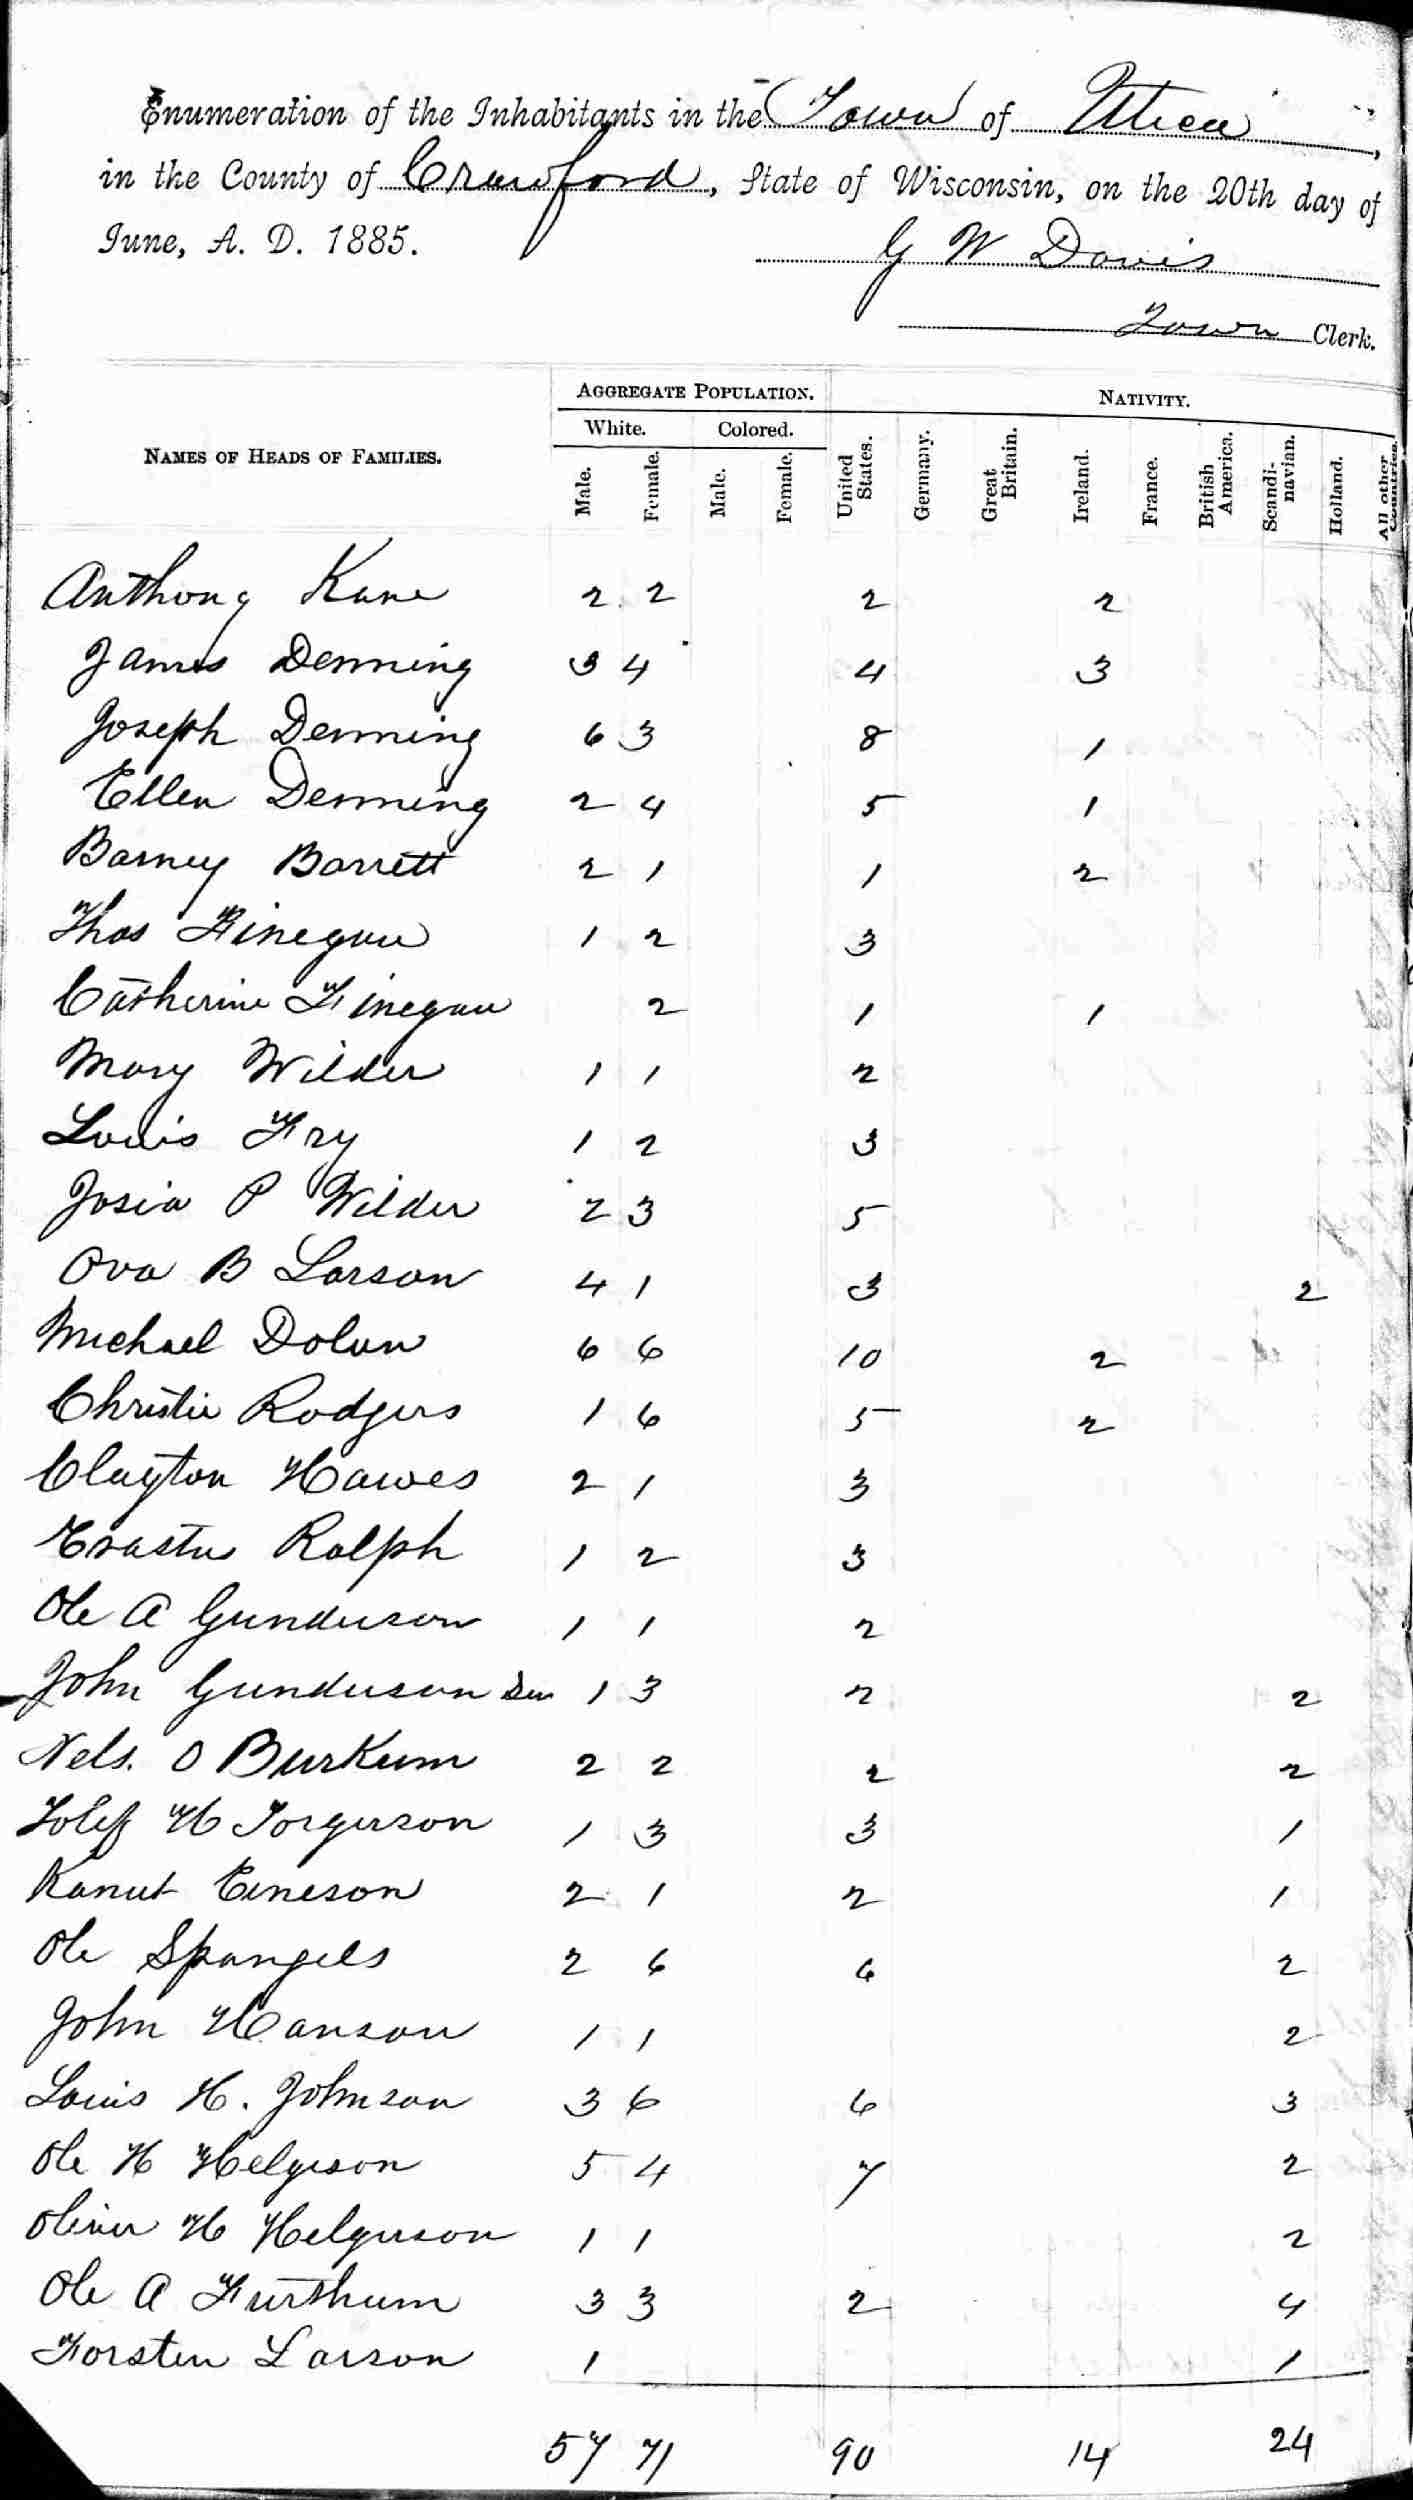 Enumeration of the Inhabitants in the Town of Utica,
in the County of Crawford, State of Wisconsin, on the 20th day of
June, A. D. 1885.
G W Davis
Town Clerk.
NAMES OF HEADS OF FAMILIES.
AGGREGATE POPULATION.
NATIVITY.
White.
Colored.
Male.
Female.
Male.
Female.
United States.
Germany.
Great Britain.
Ireland.
France.
British America.
Scandinavian.
Holland.
All other Countries.
Anthony Kane 2 2 2 2
James Denning 3 4 4 3
Joseph Denning 6 3 8 1
Ellen Denning 2 4 5 1
Barney Barrett 2 1 1 2
Thos Finegan 1 2 3
Catherine Finegan 2 1 1
Mary Wilder 1 1 2
Louis Fry 1 2 3
Josia P Wilder 2 3 5
Ova B Larson 4 1 3 2
Michael Dolan 6 6 10 2
Christie Rodgers 1 6 5 2
Clayton Hawes 2 1 3
Erastus Ralph 1 2 3
Ole A Gunderson 1 1 2
John Gunderson Sen 1 3 2 2
Nels. O Burkum 2 2 2 2
Tolef H Torgerson 1 3 3 1
Kanut Eneson 2 1 2 1
Ole Spangels 2 6 6 2
John Hanson 1 1 2
Louis H. Johnson 3 6 6 3
Ole H Helgeson 5 4 7 2
Oliver H Helgerson 1 1 2
Ole A Furthum 3 3 2 4
Torsten Larson 1 1
57 71 90 14 24